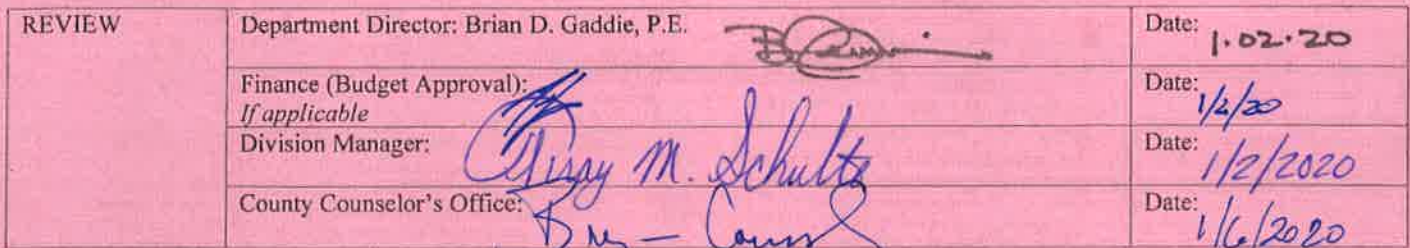 REVIEW
Department Director: Brian D. Gaddie, P.E.
Date: 1.02.20
Finance (Budget Approval):
If applicable
Date: 1/2/20
Division Manager:
M. Schultz
Date: 1/2/2020
County Counselor's Office:
Date: 1/6/2020